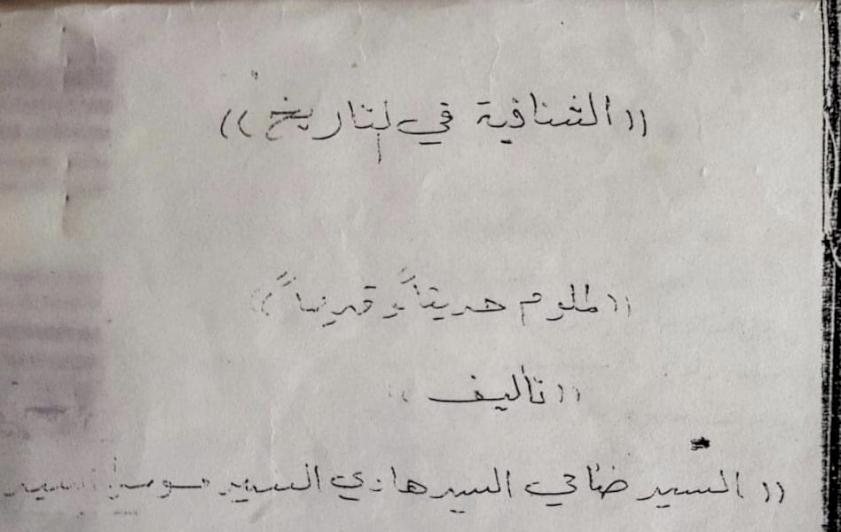 ((الشنافية في التاريخ))
((لملوم حديثاً وقديماً))
((تأليف))
((السيد ضاحي السيد هادي السيد موسى السيد